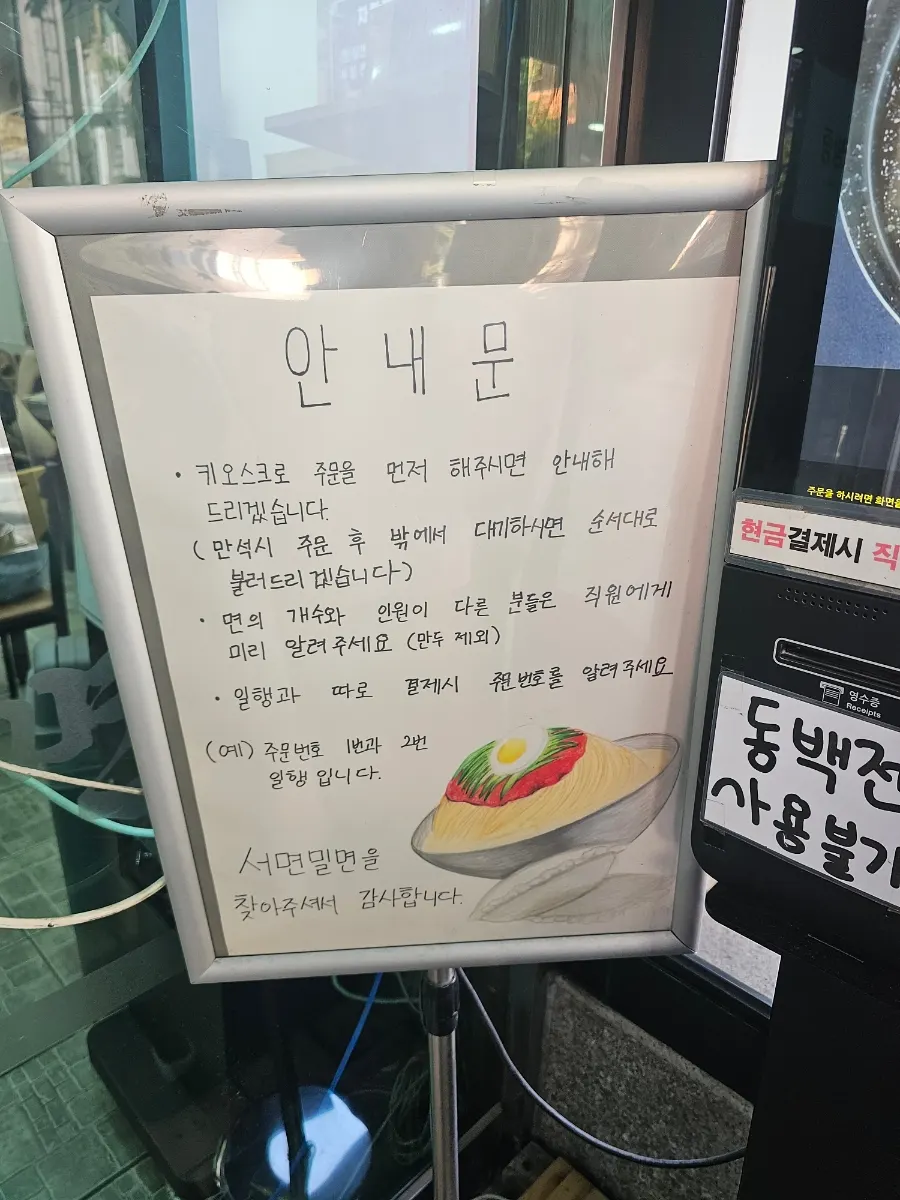 안내문
· 키오스크로 주문을 먼저 해주시면 안내해
드리겠습니다.
(만석시 주문 후 밖에서 대기하시면 순서대로
불러드리겠습니다)
· 면의 개수와 인원이 다른 분들은 직원에게
미리 알려주세요 (만두 제외)
· 일행과 따로 결제시 주문번호를 알려주세요
(예) 주문번호 1번과 2번
일행입니다.
서면밀면을
찾아주셔서 감사합니다.
주문을 하시려면 화면을
현금결제시 직
영수증
Receipts
동백전
사용불가